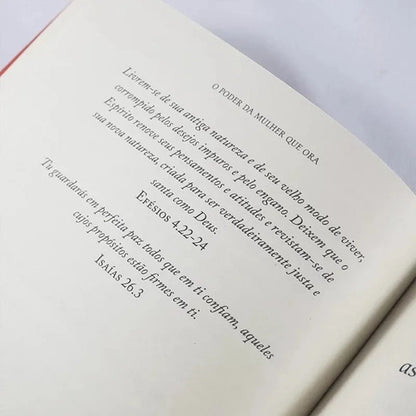 O PODER DA MULHER QUE ORA
Livrem-se de sua antiga natureza e de seu velho modo de viver,
corrompido pelos desejos impuros e pelo engano. Deixem que o
Espírito renove seus pensamentos e atitudes e revistam-se de
sua nova natureza, criada para ser verdadeiramente justa e
santa como Deus.
EFÉSIOS 4.22-24
Tu guardarás em perfeita paz todos que em ti confiam, aqueles
cujos propósitos estão firmes em ti.
ISAÍAS 26.3
as